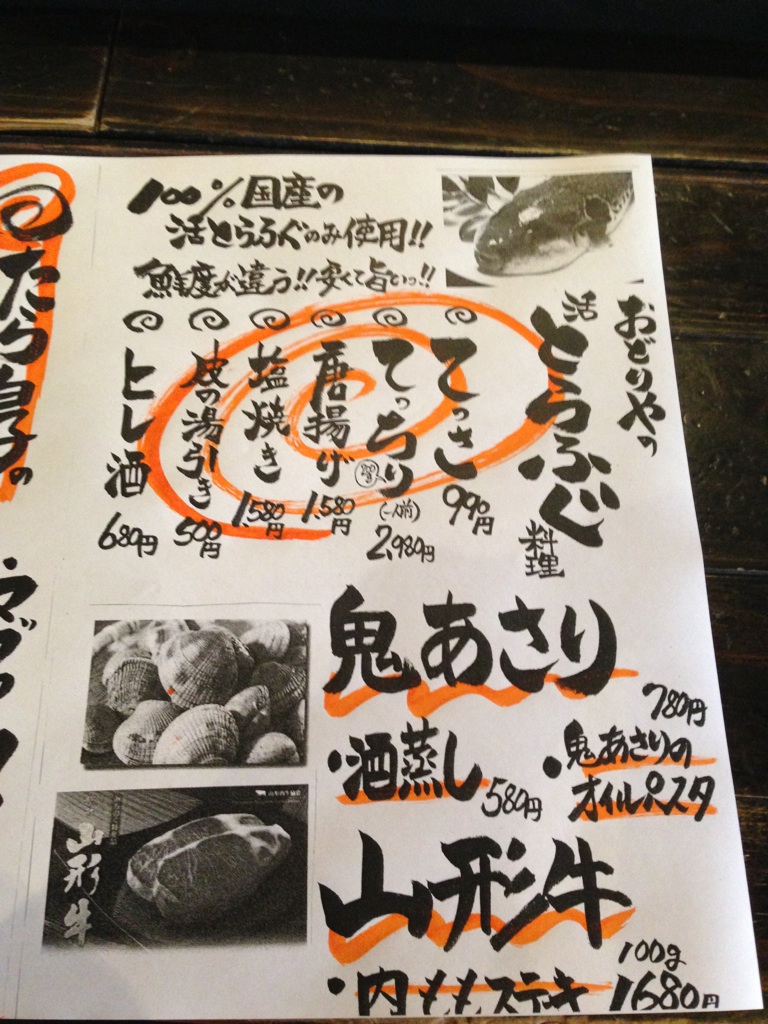 100%国産の
活とらふぐのみ使用!!
鮮度が違う!!安くて旨いっ!!
おどりやの
活とらふぐ料理
てっさ 990円
てっちり (一人前) 2,980円
唐揚げ 1,580円
塩焼き 1,580円
皮の湯引き 500円
ヒレ酒 680円
鬼あさり
・酒蒸し 580円
・鬼あさりの
オイルパスタ 780円
山形牛
・内ももステーキ 100g 1680円
山形牛